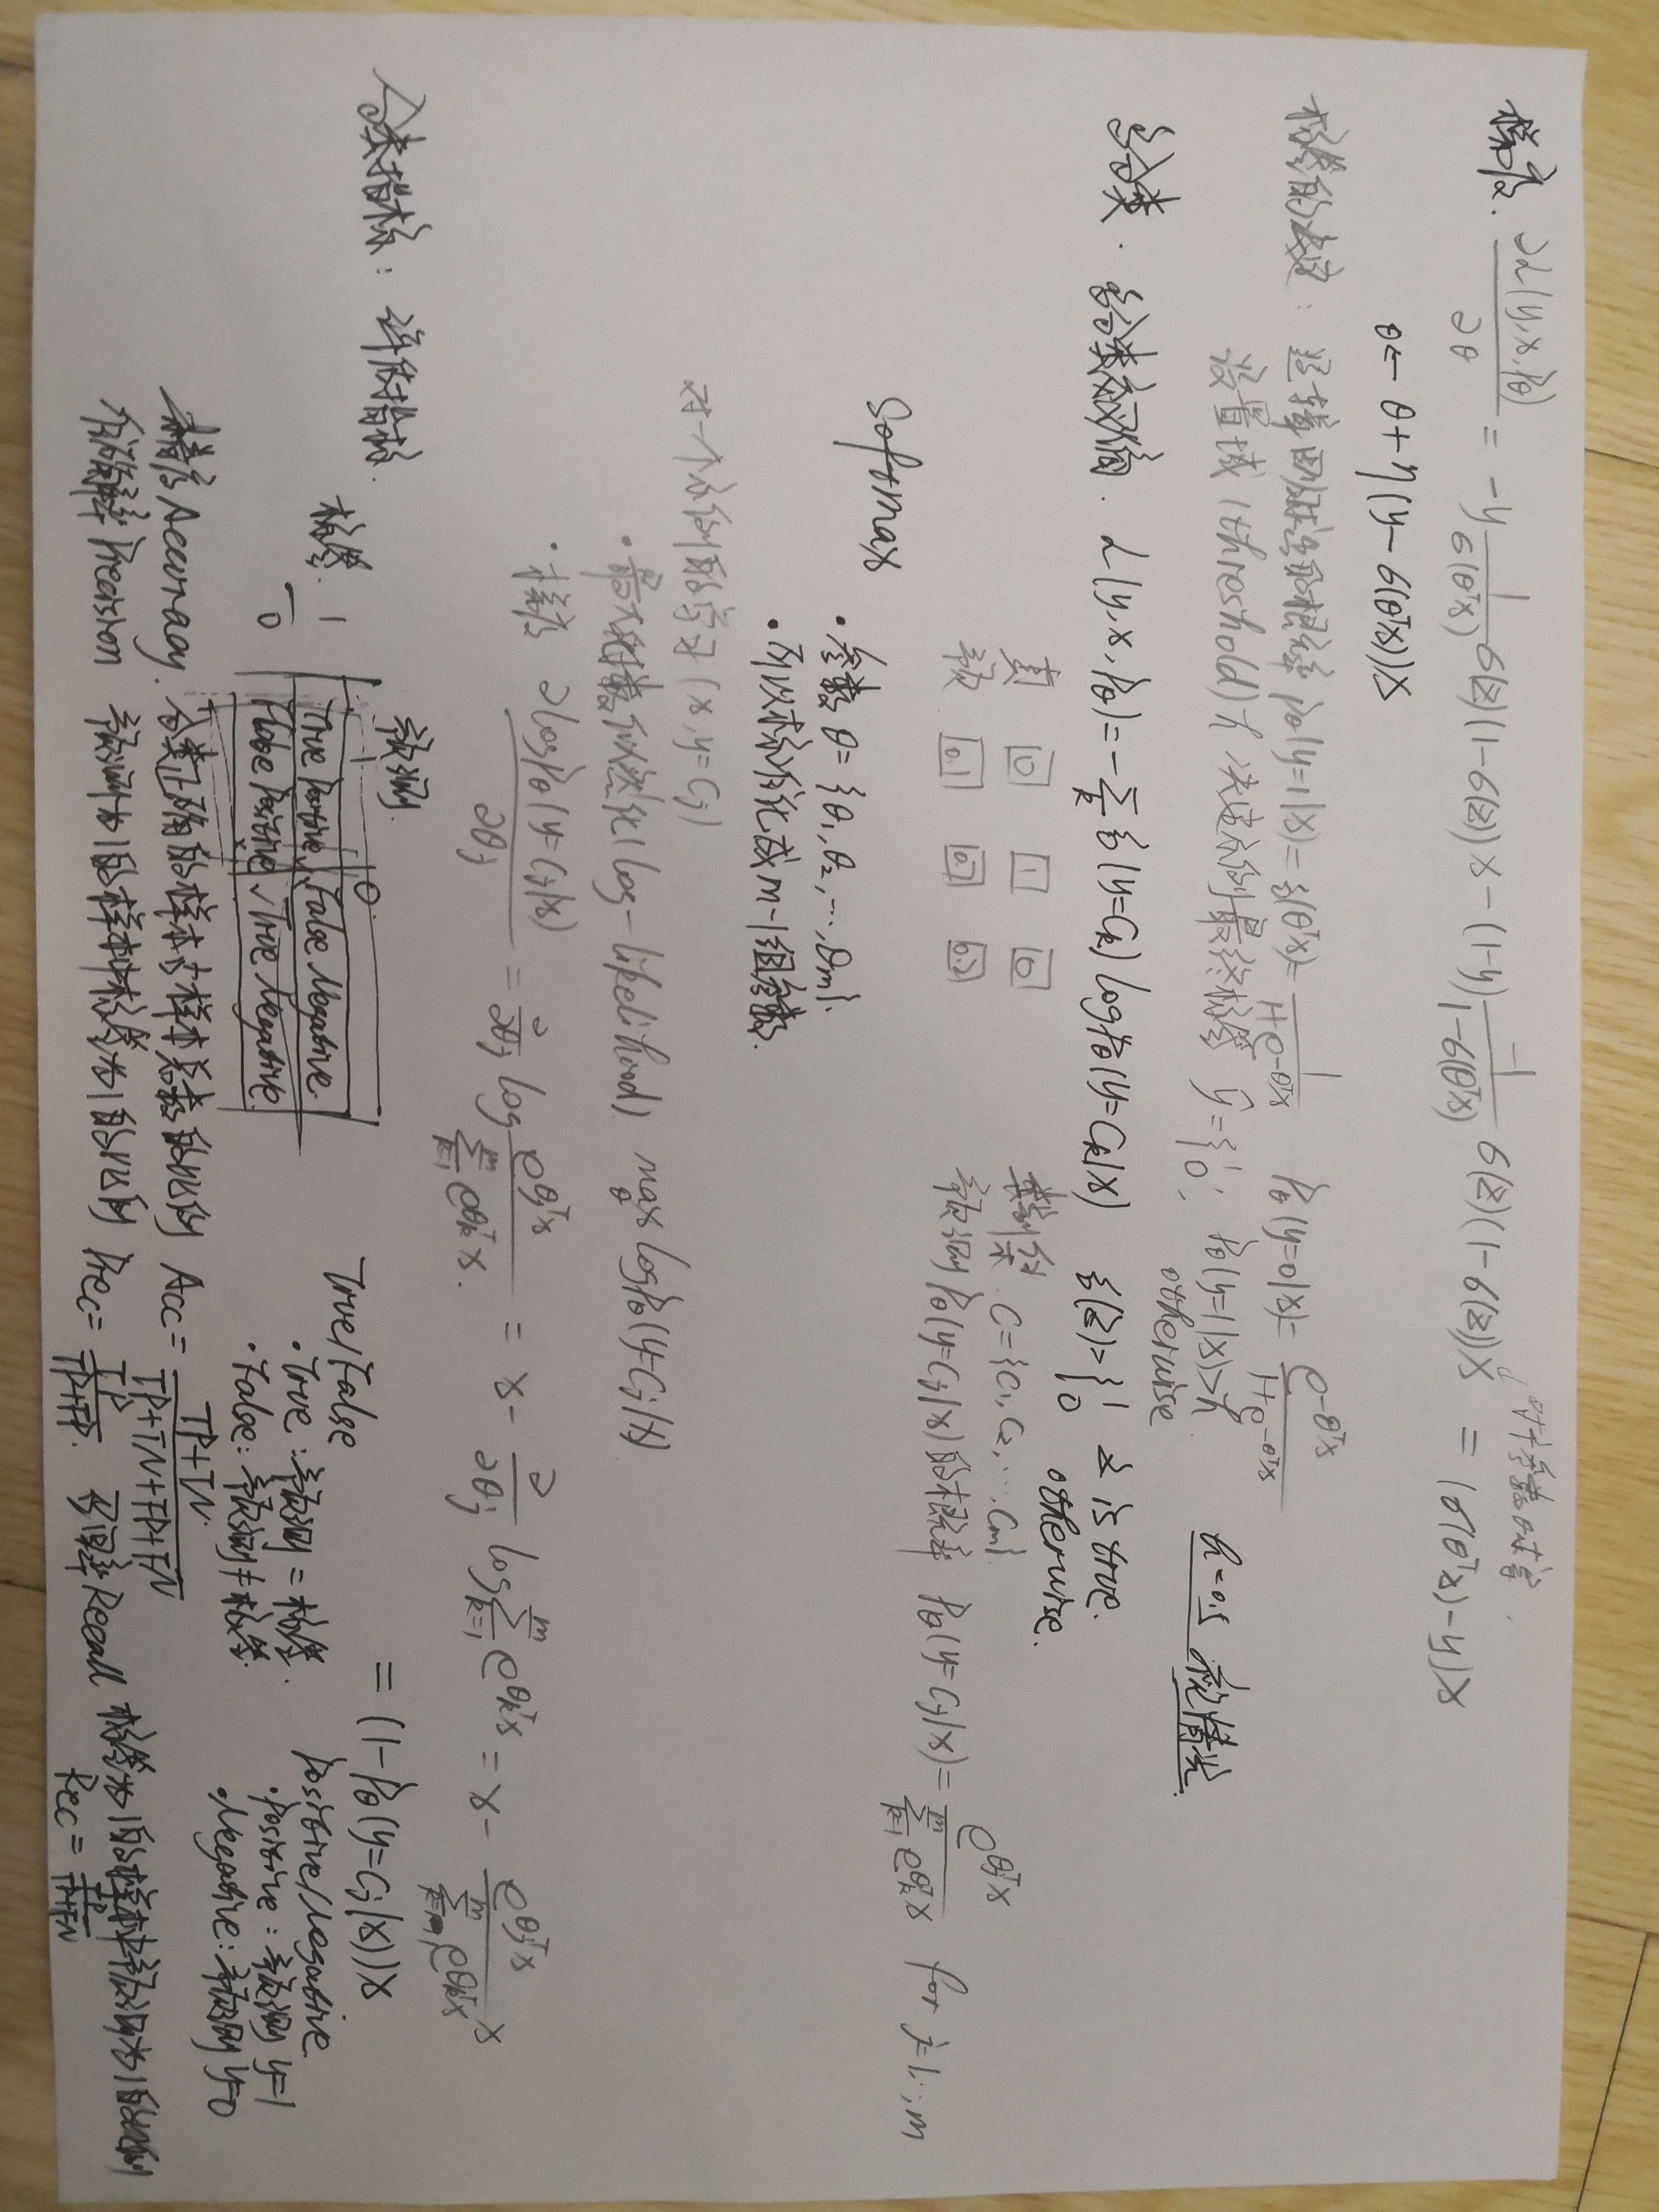 梯度. ∂L(y,x,pθ)/∂θ = -y 1/σ(θᵀx) σ(z)(1-σ(z))x - (1-y) -1/(1-σ(θᵀx)) σ(z)(1-σ(z))x = (σ(θᵀx)-y)x
θ← θ+η(y-σ(θᵀx))x
标签的决定: 逻辑回归给出的概率 pθ(y=1|x)=σ(θᵀx)=1/(1+e^{-θᵀx}) pθ(y=0|x)=e^{-θᵀx}/(1+e^{-θᵀx})
设置域 (threshold) h 决定示例最终标签 ŷ={1, pθ(y=1|x)>h
0, otherwise
h=0.5
多分类. 多分类交叉熵. L(y,x,pθ)=-∑ₖ δ(y=Cₖ) log pθ(y=Cₖ|x) δ(z)={1 z is true.
0 otherwise.
真 [0] [1] [0]
预 [0.1] [0.7] [0.2]
类别分布 C={C₁,C₂,…,Cm}.
预测 pθ(y=Cj|x)的概率 pθ(y=Cj|x)=e^{θjᵀx}/∑_{k=1}^m e^{θkᵀx} for j=1…,m
Softmax
• 参数 θ={θ₁,θ₂,…,θm}.
• 可以标准化成 m-1组参数.
对一个示例的学习 (x,y=Cj)
• 最大化对数似然化(log-likelihood) max_θ log pθ(y=Cj|x)
• 梯度 ∂log pθ(y=Cj|x)/∂θj = ∂/∂θj log e^{θjᵀx}/∑_{k=1}^m e^{θkᵀx}. = x- ∂/∂θj log ∑_{k=1}^m e^{θkᵀx} = x- e^{θjᵀx}x/∑_{k=1}^m e^{θkᵀx}
= (1-pθ(y=Cj|x))x
分类指标: 评估指标.
预测.
1 0.
标签. 1 True Positive. False Negative.
0 False Positive True Negative.
True/False
• True: 预测=标签.
• False: 预测≠标签.
Positive/Negative
• Positive: 预测 y=1
• Negative: 预测 y=0
精度 Accuracy. 分类正确的样本占样本总数的比例 Acc= TP+TN/TP+TN+FP+FN
准确率 Precision 预测为1的样本中标签为1的比例 Prec= TP/TP+FP. 召回率 Recall 标签为1的样本中预测为1的比例
Rec= TP/TP+FN